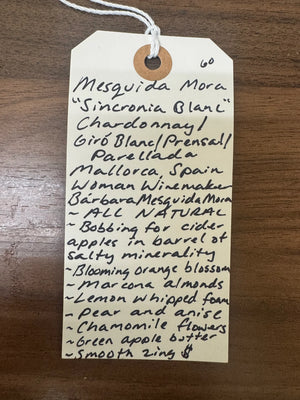 60
Mesquida Mora
"Sincronia Blanc"
Chardonnay/
Giró Blanc/Prensal/
Parellada
Mallorca, Spain
Woman Winemaker
Bárbara Mesquida Mora
~ ALL NATURAL ~
~ Bobbing for cider
apples in barrel of
salty minerality
~ Blooming orange blossom
~ Marcona almonds
~ Lemon whipped foam
~ Pear and anise
~ Chamomile flowers
~ Green apple butter
~ Smooth zing $